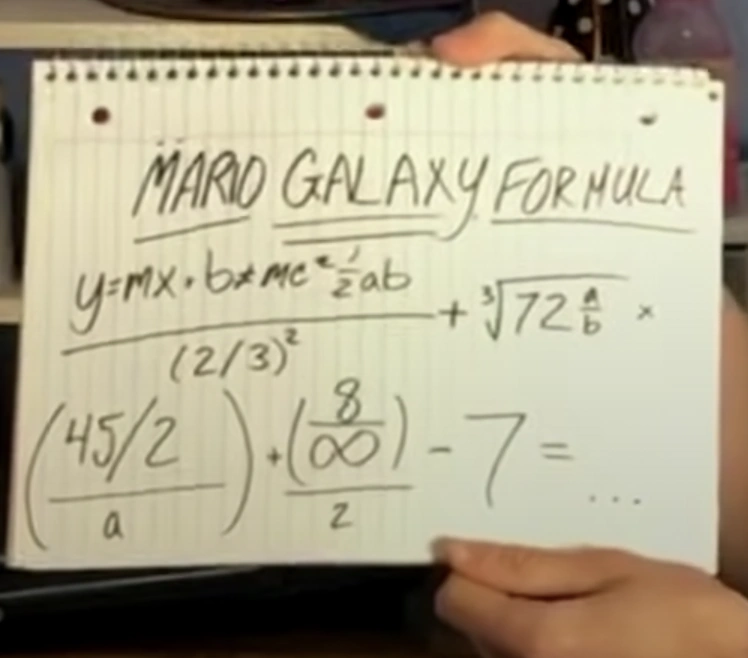 MARIO GALAXY FORMULA
y=mx·b*mc² ½ab
(2/3)²
+ ³√72 a/b ×
(45/2
a) + (8/∞
2) - 7 = ...